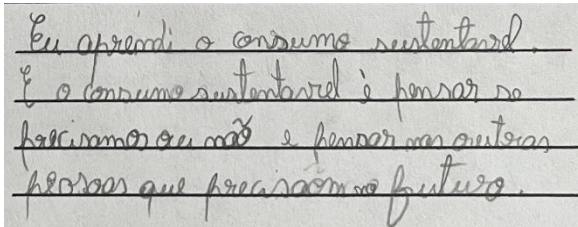 Eu aprendi o consumo sustentavel.
E o consumo sustentavel è pensar se
precisamos ou não e pensar nas outras
pessoas que precisaõm no futuro.